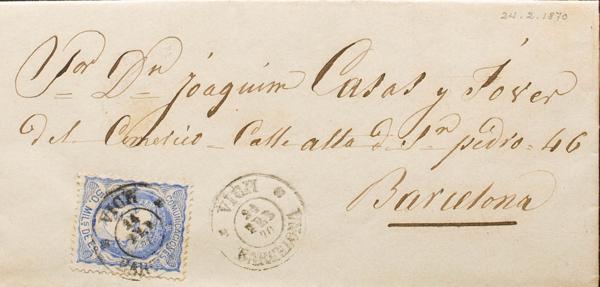 24.2.1870
Sor Dn Joaquim Casas y Jover
del Comercio - Calle alta de Sn pedro - 46
Barcelona
VICH
BARCELONA
VICH
24
FEB
70
BAR
COMUNICACIONES
50. MILS DE E.